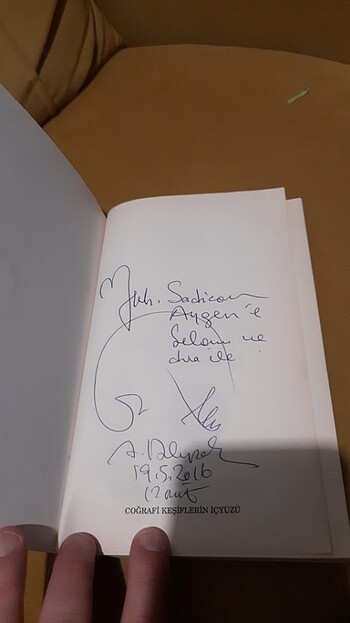 Muh. Sadican
Aygen'e
Selam ve
dua ile
19.5.2016
COĞRAFİ KEŞİFLERİN İÇYÜZÜ